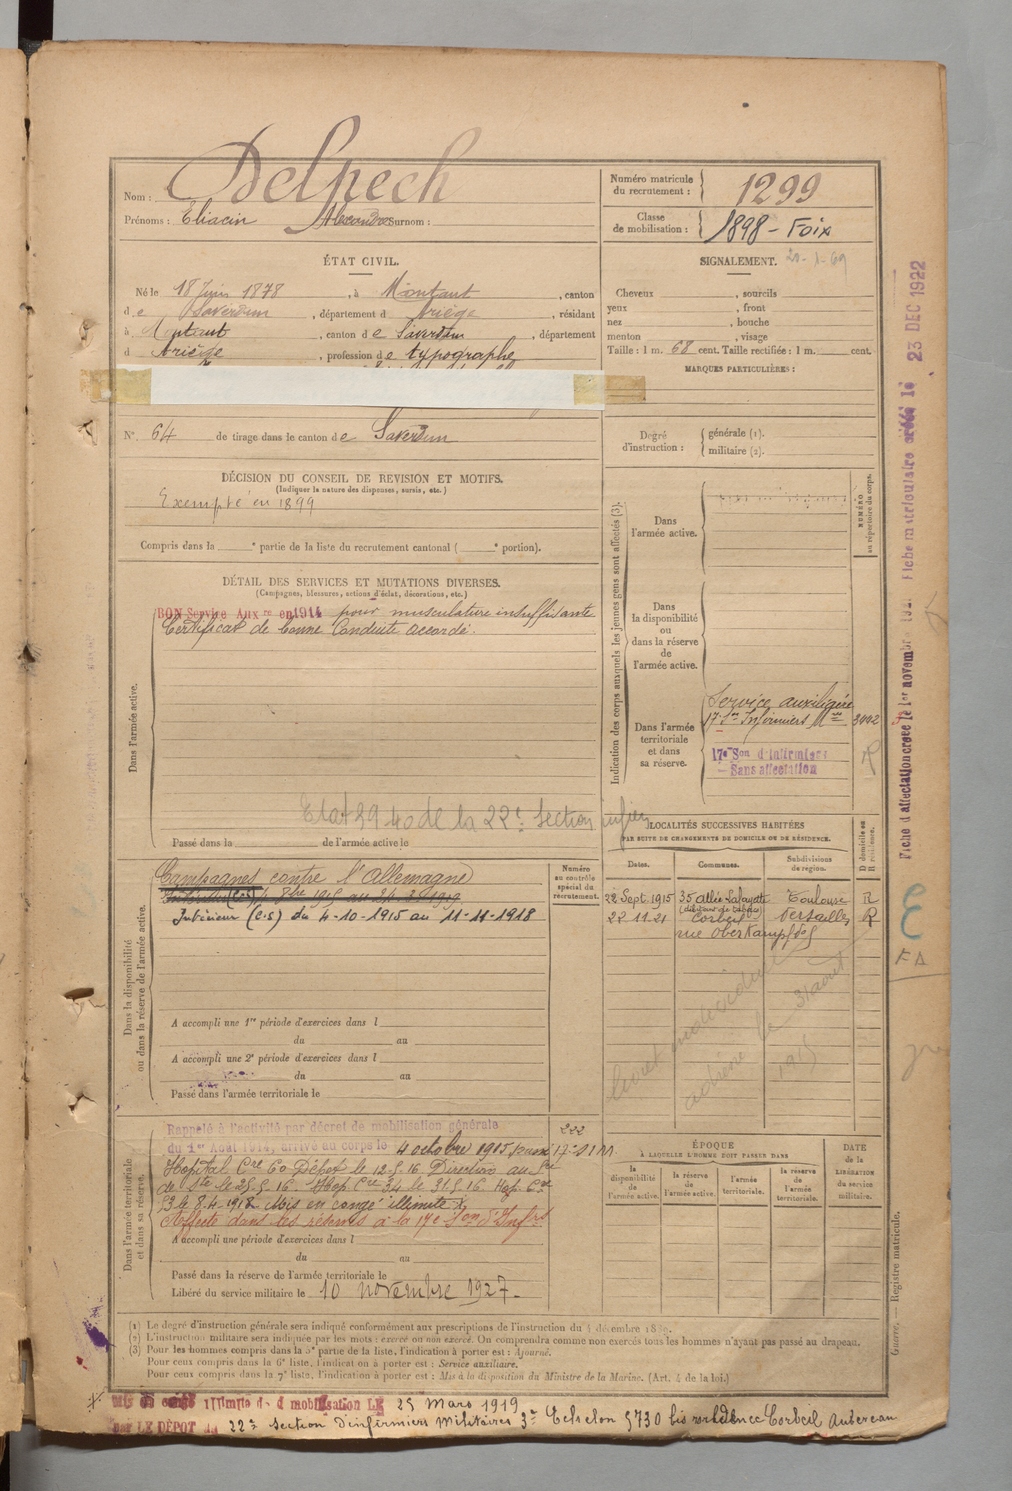 Nom : Delpech
Prénoms : Eliacin Alexandre Surnom :
Numéro matricule du recrutement : 1299
Classe de mobilisation : 1898 - Foix
ÉTAT CIVIL.
Né le 18 Juin 1878, à Montaut, canton
de Saverdun, département d Ariège, résidant
à Montaut, canton de Saverdun, département
d Ariège, profession de typographe
N° 64 de tirage dans le canton de Saverdun
SIGNALEMENT.
Cheveux , sourcils
yeux , front
nez , bouche
menton , visage
Taille : 1 m. 68 cent. Taille rectifiée : 1 m. cent.
MARQUES PARTICULIÈRES :
Degré d'instruction : générale (1).
militaire (2).
DÉCISION DU CONSEIL DE REVISION ET MOTIFS.
(Indiquer la nature des dispenses, sursis, etc.)
Exempté en 1899
Compris dans la e partie de la liste du recrutement cantonal ( e portion).
DÉTAIL DES SERVICES ET MUTATIONS DIVERSES.
(Campagnes, blessures, actions d'éclat, décorations, etc.)
Dans l'armée active.
BON Service Auxre en 1914 pour musculature insuffisante
Certificat de bonne Conduite accordé.
Etat 39 40 de la 22e Section infirm
Passé dans la de l'armée active le
Indication des corps auxquels les jeunes gens sont affectés (3).
NUMÉRO au répertoire du corps.
Dans l'armée active.
Dans la disponibilité ou dans la réserve de l'armée active.
Dans l'armée territoriale et dans sa réserve.
Service auxiliaire
17 Son Infirmiers Mres 3442
17e Son d'Infirmiers
— Sans affectation
Dans la disponibilité ou dans la réserve de l'armée active.
Campagnes contre l'Allemagne
Intérieur (C.S) du 4-10-1915 au 11-11-1918
Numéro au contrôle spécial du recrutement.
A accompli une 1re période d'exercices dans l
du au
A accompli une 2e période d'exercices dans l
du au
Passé dans l'armée territoriale le
LOCALITÉS SUCCESSIVES HABITÉES
PAR SUITE DE CHANGEMENTS DE DOMICILE OU DE RÉSIDENCE.
Dates. Communes. Subdivisions de région. D domicile ou R résidence.
22 Sept. 1915 35 Allée Lafayette Toulouse R
22 11 21 Corbeil Versailles R
rue Oberkampf
livret individuel
adressé le 31 août
1915
Dans l'armée territoriale et dans sa réserve.
Rappelé à l'activité par décret de mobilisation générale
du 1er Août 1914, arrivé au corps le 4 octobre 1915
222
Hopital Cre 60 Dépot le 12-5-16. Direction au Sce
de Sté le 25 5 16. Hop. Cre 34 le 31 5 16. Hop. Cre
53 le 8.4.1918 Mis en congé illimité X
Affecté dans les réserves à la 17e Son d'Infrs
A accompli une période d'exercices dans l
du au
Passé dans la réserve de l'armée territoriale le
Libéré du service militaire le 10 novembre 1927.
ÉPOQUE
À LAQUELLE L'HOMME DOIT PASSER DANS
la disponibilité de l'armée active.
la réserve de l'armée active.
l'armée territoriale.
la réserve de l'armée territoriale.
DATE de la LIBÉRATION du service militaire.
(1) Le degré d'instruction générale sera indiqué conformément aux prescriptions de l'instruction du 4 décembre 1889.
(2) L'instruction militaire sera indiquée par les mots : exercé ou non exercé. On comprendra comme non exercés tous les hommes n'ayant pas passé au drapeau.
(3) Pour les hommes compris dans la 5e partie de la liste, l'indication à porter est : Ajourné.
Pour ceux compris dans la 6e liste, l'indication à porter est : Service auxiliaire.
Pour ceux compris dans la 7e liste, l'indication à porter est : Mis à la disposition du Ministre de la Marine. (Art. 4 de la loi.)
Mis en congé illimité de démobilisation LE 25 Mars 1919
par LE DÉPOT du 22e Section d'infirmiers Militaires 3e Echelon 5730 bis résidence Corbeil
Fiche d'affectation créée le 1er novembre Fiche matriculaire créée le 23 DEC 1922
FA
Guerre. — Registre matricule.